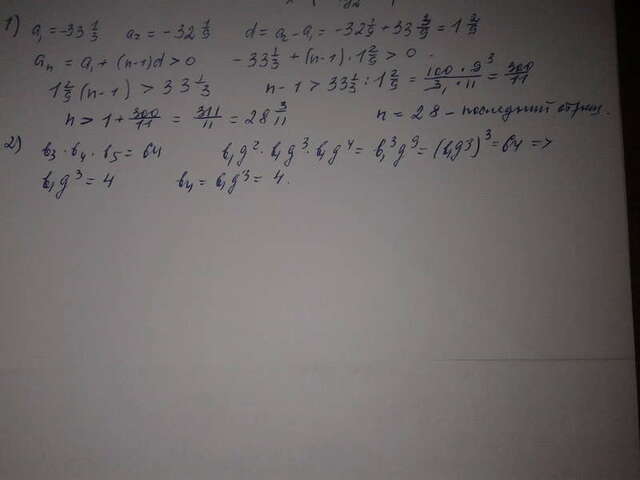 1) a₁ = -33 1/3 a₂ = -32 1/9 d = a₂ - a₁ = -32 1/9 + 33 3/9 = 1 2/9
aₙ = a₁ + (n-1)d > 0 -33 1/3 + (n-1) · 1 2/9 > 0
1 2/9 (n-1) > 33 1/3 n-1 > 33 1/3 : 1 2/9 = 100 · 9³ / 3₁ · 11 = 300/11
n > 1 + 300/11 = 311/11 = 28 3/11 n = 28 - последний отриц.
2) b₃ · b₄ · b₅ = 64 b₁g² · b₁g³ · b₁g⁴ = b₁³g⁹ = (b₁g3)³ = 64 =>
b₁g³ = 4 b₄ = b₁g³ = 4.